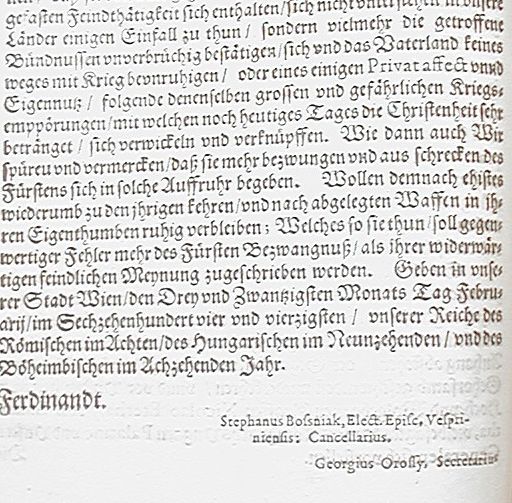 gefasten Feindthätigkeit sich enthalten/sich nicht
Länder einigen Einfall zu thun/ sondern vielmehr die getroffene
Bündnussen vnverbrüchig bestätigen/sich vnd das Vaterland keines
weges mit Krieg bevnruhigen/ oder eines einigen Privat affect vnnd
Eigennutz/ folgende denenselben grossen vnd gefährlichen Kriegs-
emppörungen/mit welchen noch heutiges Tages die Christenheit sehr
betränget/ sich verwickeln vnd verknüpffen. Wie dann auch Wir
spüren vnd vermercken/daß sie mehr bezwungen vnd aus schrecken des
Fürstens sich in solche Auffruhr begeben. Wollen demnach ehistes
wiederumb zu den jhrigen kehren/vnd nach abgelegten Waffen in jh-
ren Eigenthumben ruhig verbleiben; Welches so sie thun/soll gegen-
wertiger Fehler mehr des Fürsten Bezwangnuß/als jhrer widerwär-
tigen feindlichen Meynung zugeschrieben werden. Geben in vnse-
rer Stadt Wien/den Drey vnd Zwantzigsten Monats Tag Febru-
arij/im Sechzehenhundert vier vnd vierzigsten/ vnserer Reiche des
Römischen im Achten/des Hungarischen im Neunzehenden/vnd des
Böheimbischen im Achzehenden Jahr.
Ferdinandt.
Stephanus Bosniak, Elect. Episc. Vespri-
niensis; Cancellarius.
Georgius Orossy, Secretarius